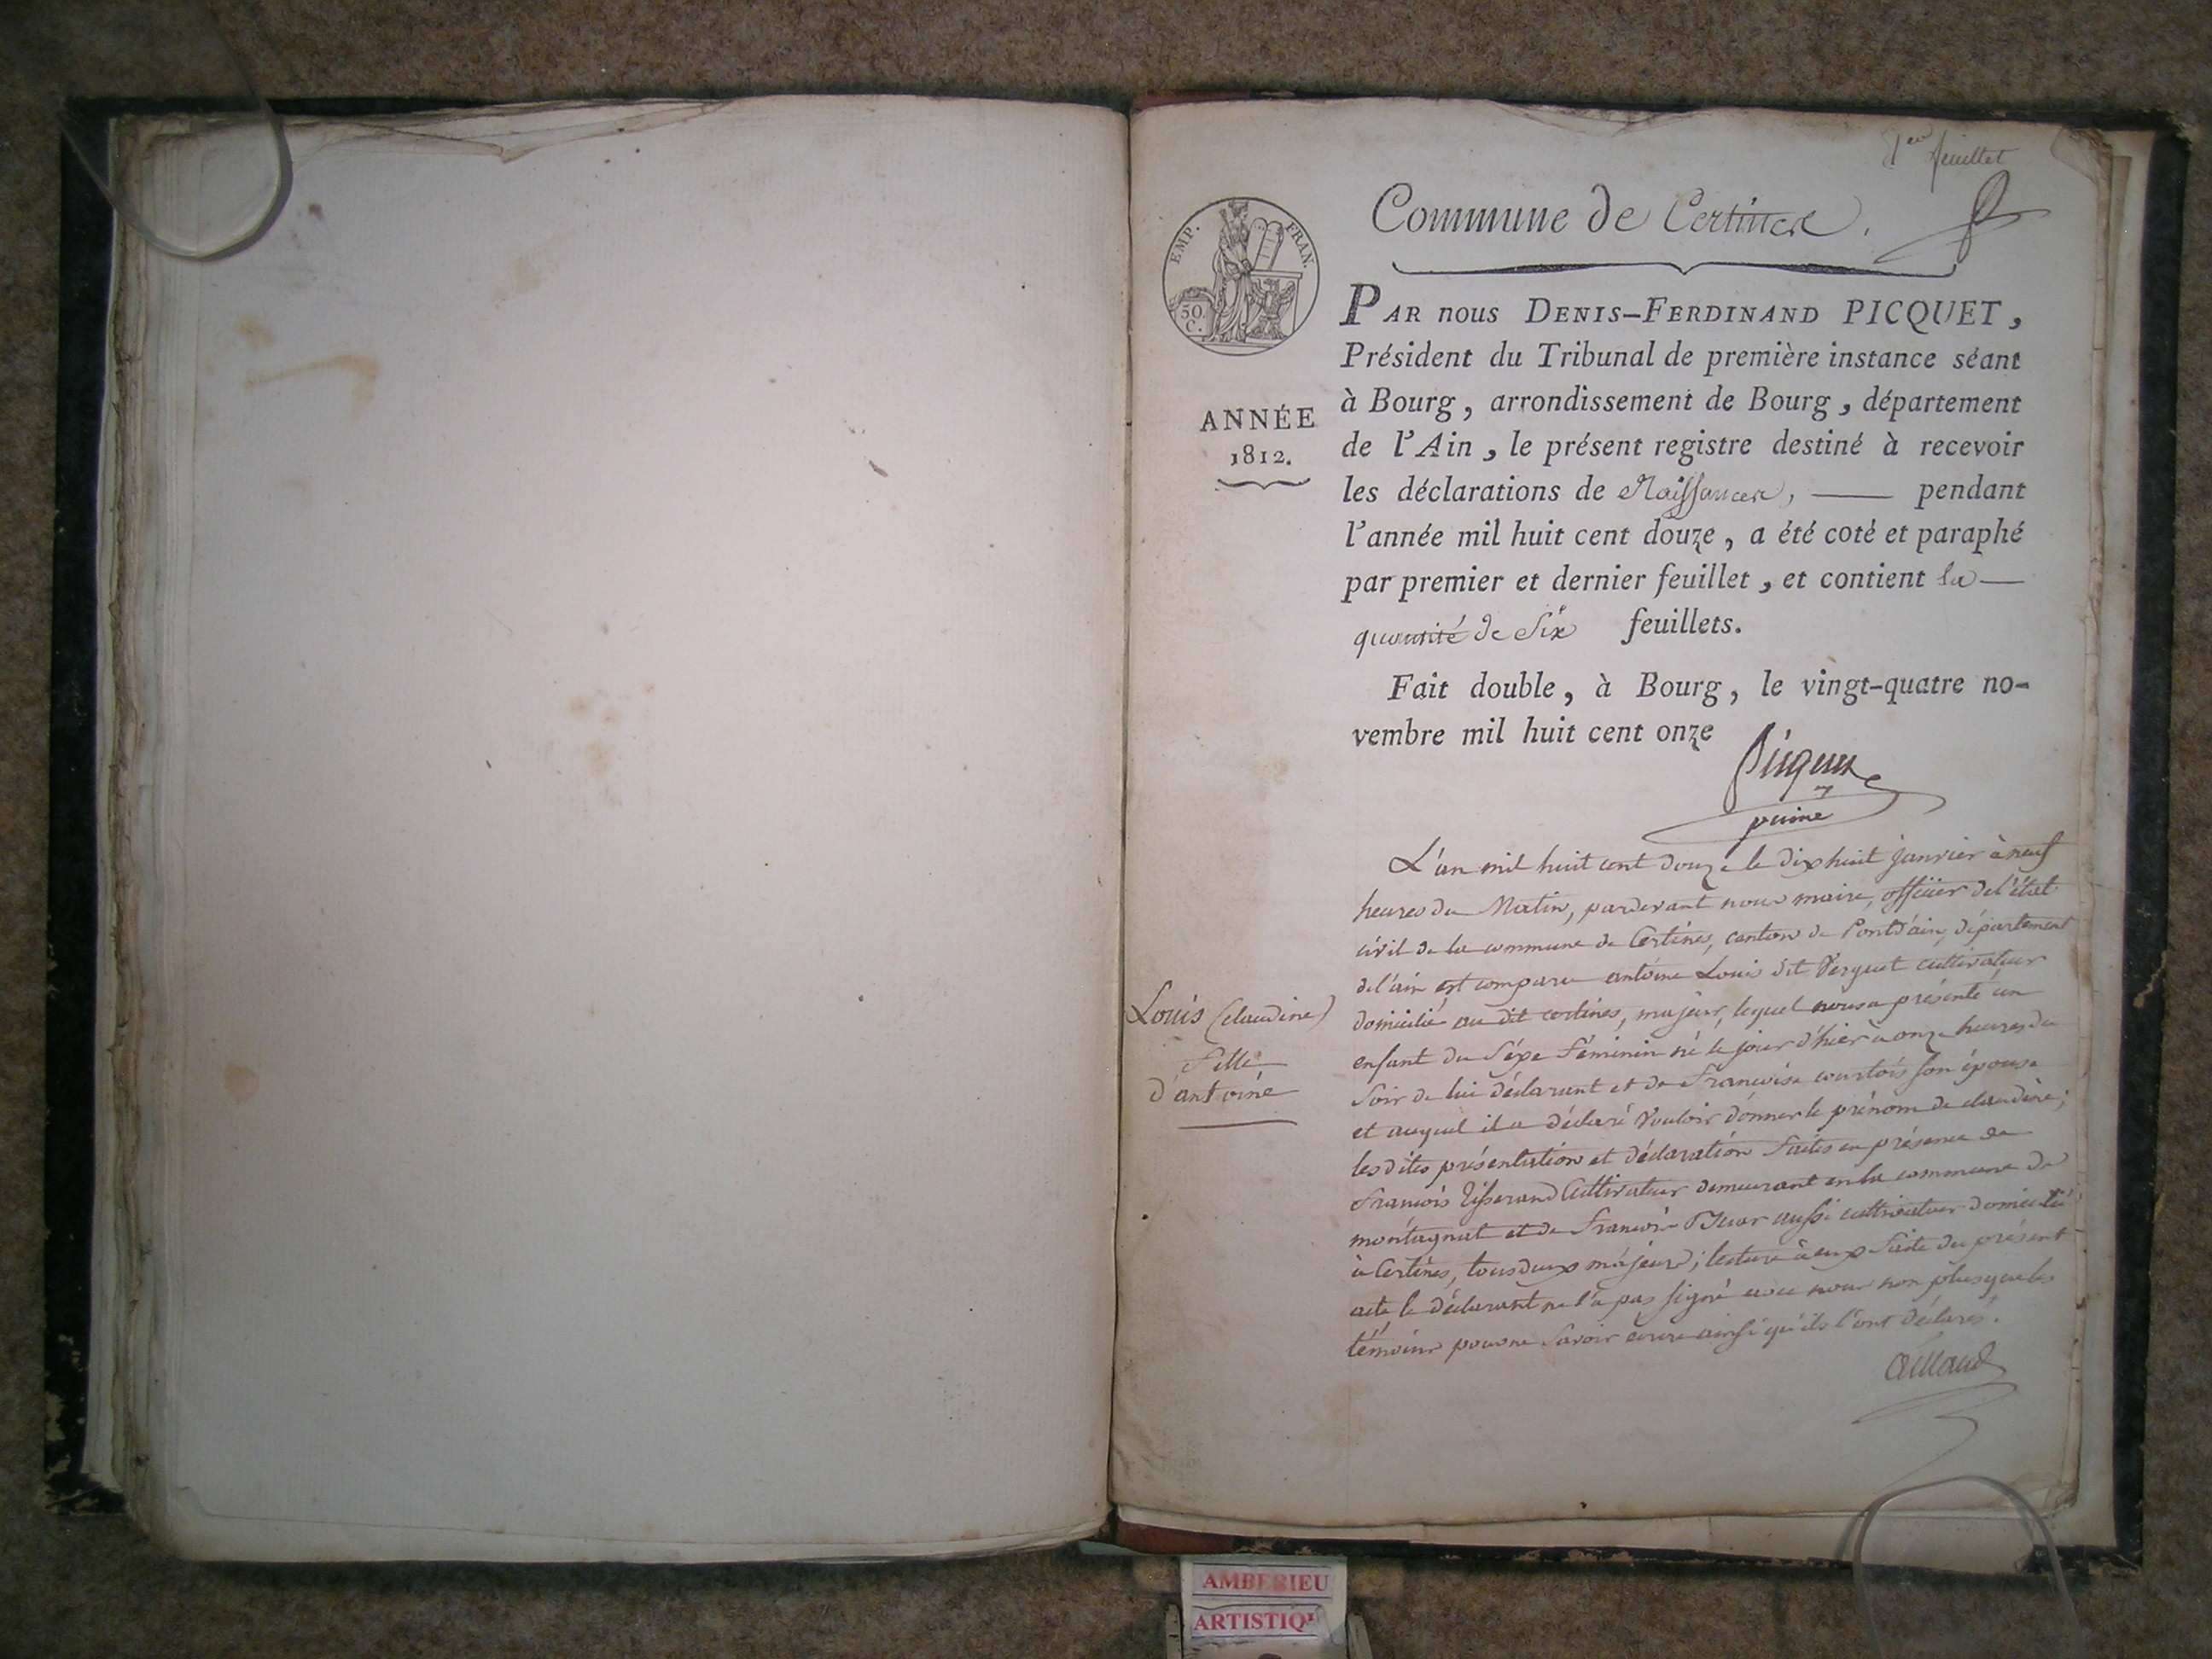 1er feuillet
Commune de Certines.
EMP. FRAN.
50.
C.
ANNÉE
1812.
PAR nous DENIS-FERDINAND PICQUET,
Président du Tribunal de première instance séant
à Bourg, arrondissement de Bourg, département
de l'Ain, le présent registre destiné à recevoir
les déclarations de Naissances, — pendant
l'année mil huit cent douze, a été coté et paraphé
par premier et dernier feuillet, et contient la —
quantité de Six feuillets.
Fait double, à Bourg, le vingt-quatre no-
vembre mil huit cent onze
Picquet
Louis (claudine)
fille
d'antoine
L'an mil huit cent douze le dix huit janvier à neuf
heures du Matin, pardevant nous maire, officier de l'état
civil de la commune de Certines, canton de Pontd'ain, département
de l'ain est comparu antoine Louis dit Verguet cultivateur
domicilié au dit certines, majeur, lequel nous a présenté un
enfant du séxe féminin né le jour d'hier à onze heures du
Soir de lui déclarant et de francoise courtois son épouse
et auquel il a déclaré vouloir donner le prénom de claudine;
lesdites présentation et déclaration faites en présence de
francois Tisserand Cultivateur demeurant en la commune de
montagnat et de francois aussi cultivateur domicilié
à Certines, tous deux majeurs; lecture à eux faite du présent
acte, le déclarant ne l'a pas signé avec nous non plus que les
témoins pour ne Savoir écrire ainsi qu'ils l'ont déclaré.
AMBERIEU
ARTISTIQ